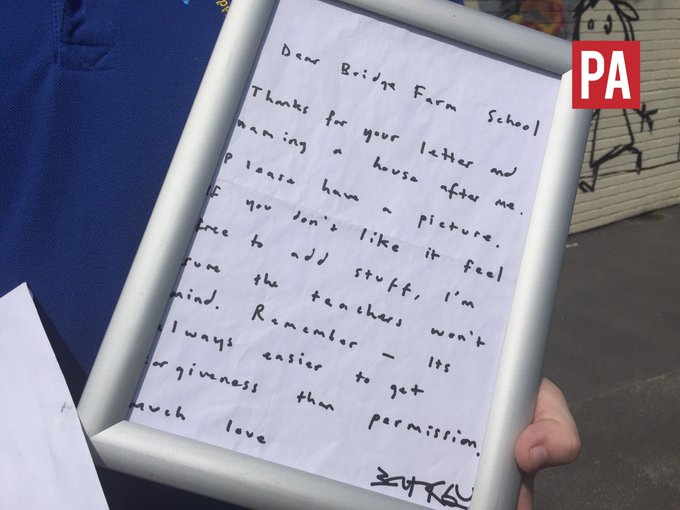 PA
Dear Bridge Farm School
Thanks for your letter and
naming a house after me.
Please have a picture.
if you don't like it feel
free to add stuff, I'm
sure the teachers won't
mind. Remember – Its
always easier to get
forgiveness than permission.
much love
BANKSY